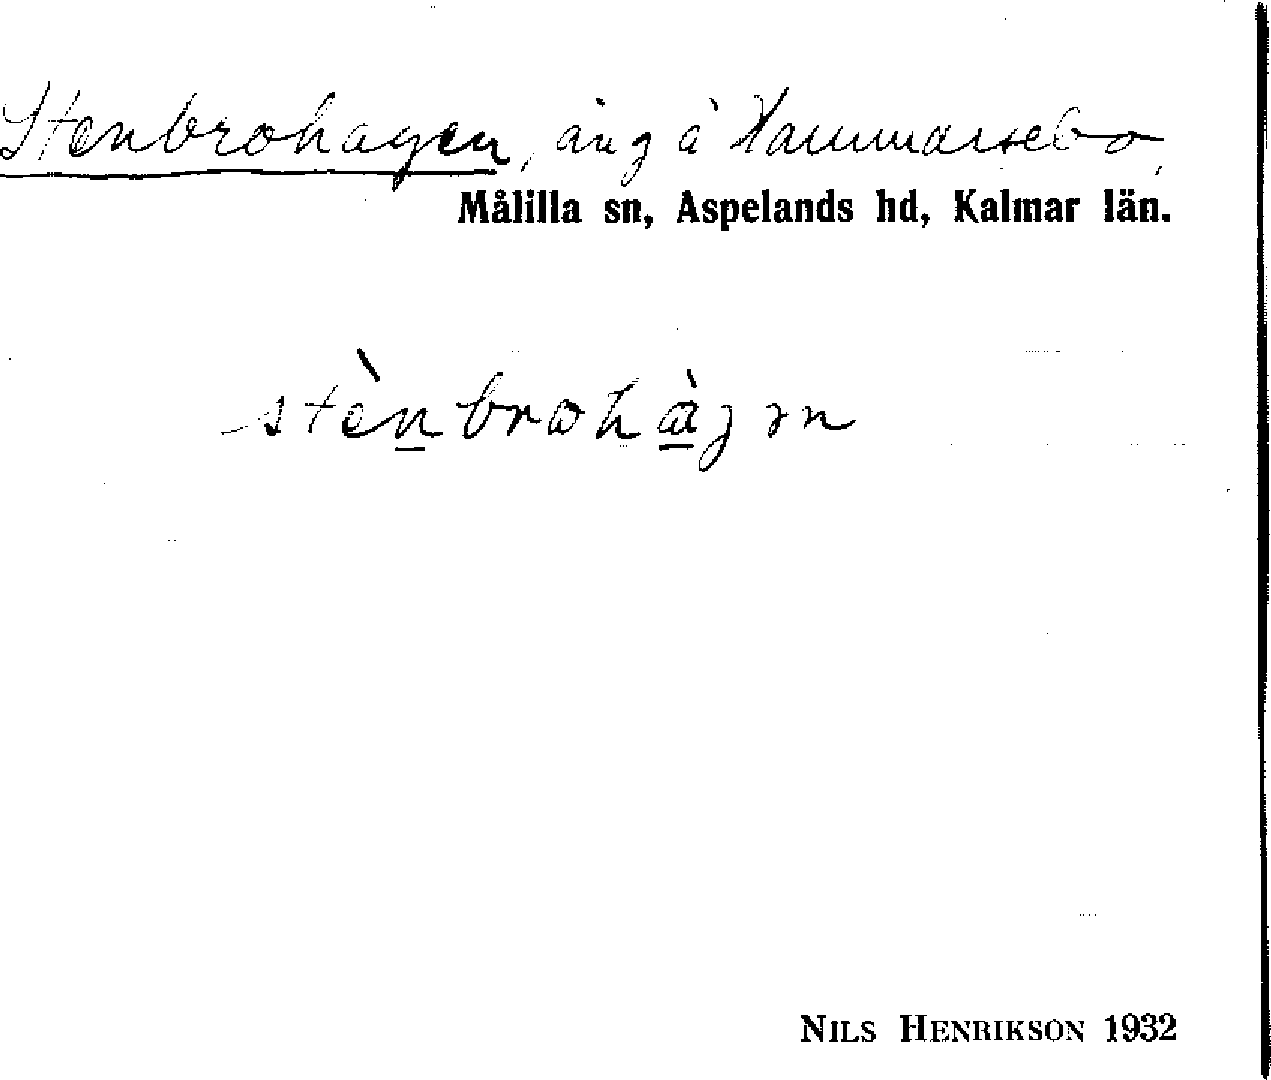 Stenbrohagen, äng å Hammarsebo,
Målilla sn, Aspelands hd, Kalmar län.
stènbrohàgən
NILS HENRIKSON 1932